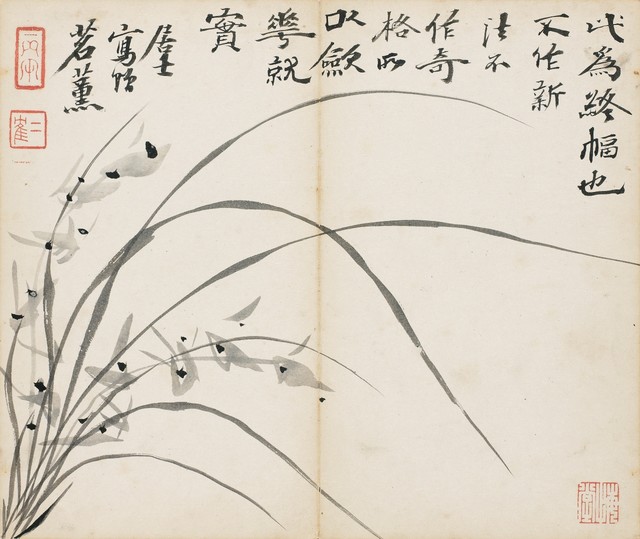 此為終幅也
不作新
法不
作奇
格所
以斂
華就
實
居士
寫貽
茗薰